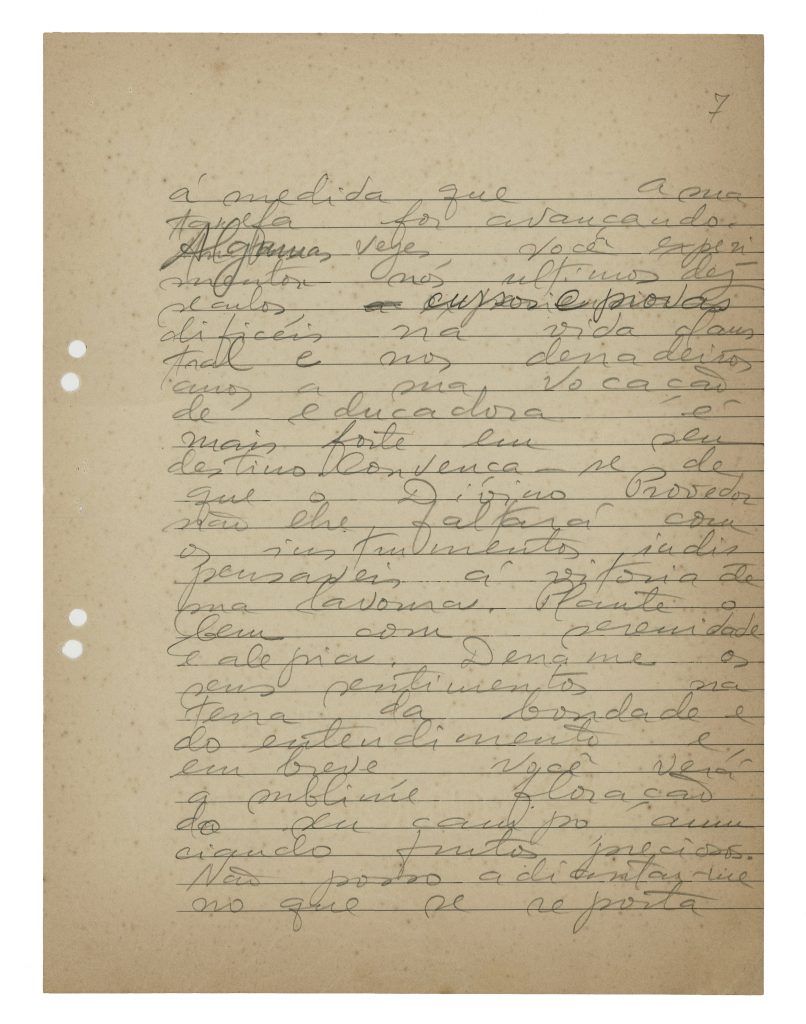 7
á medida que a sua
tarefa for avançando.
Algumas vezes você experi
mentou nós ultimos dez
seculos, cursos e provas
dificéis na vida claus
tral e nos derradeiros
anos a sua vocação
de educadora é
mais forte em seu
destino. Convença-se de
que o Divino Provedor
não lhe faltará com
os instrumentos indis
pensaveis á vitória de
sua lavoura. Plante o
bem com serenidade
e alegria. Derrame os
seus sentimentos na
terra da bondade e
do entendimento e
em breve você verá
a sublime floração
do seu campo anun
ciando frutos preciosos.
Não posso adiantar-me
no que se reporta